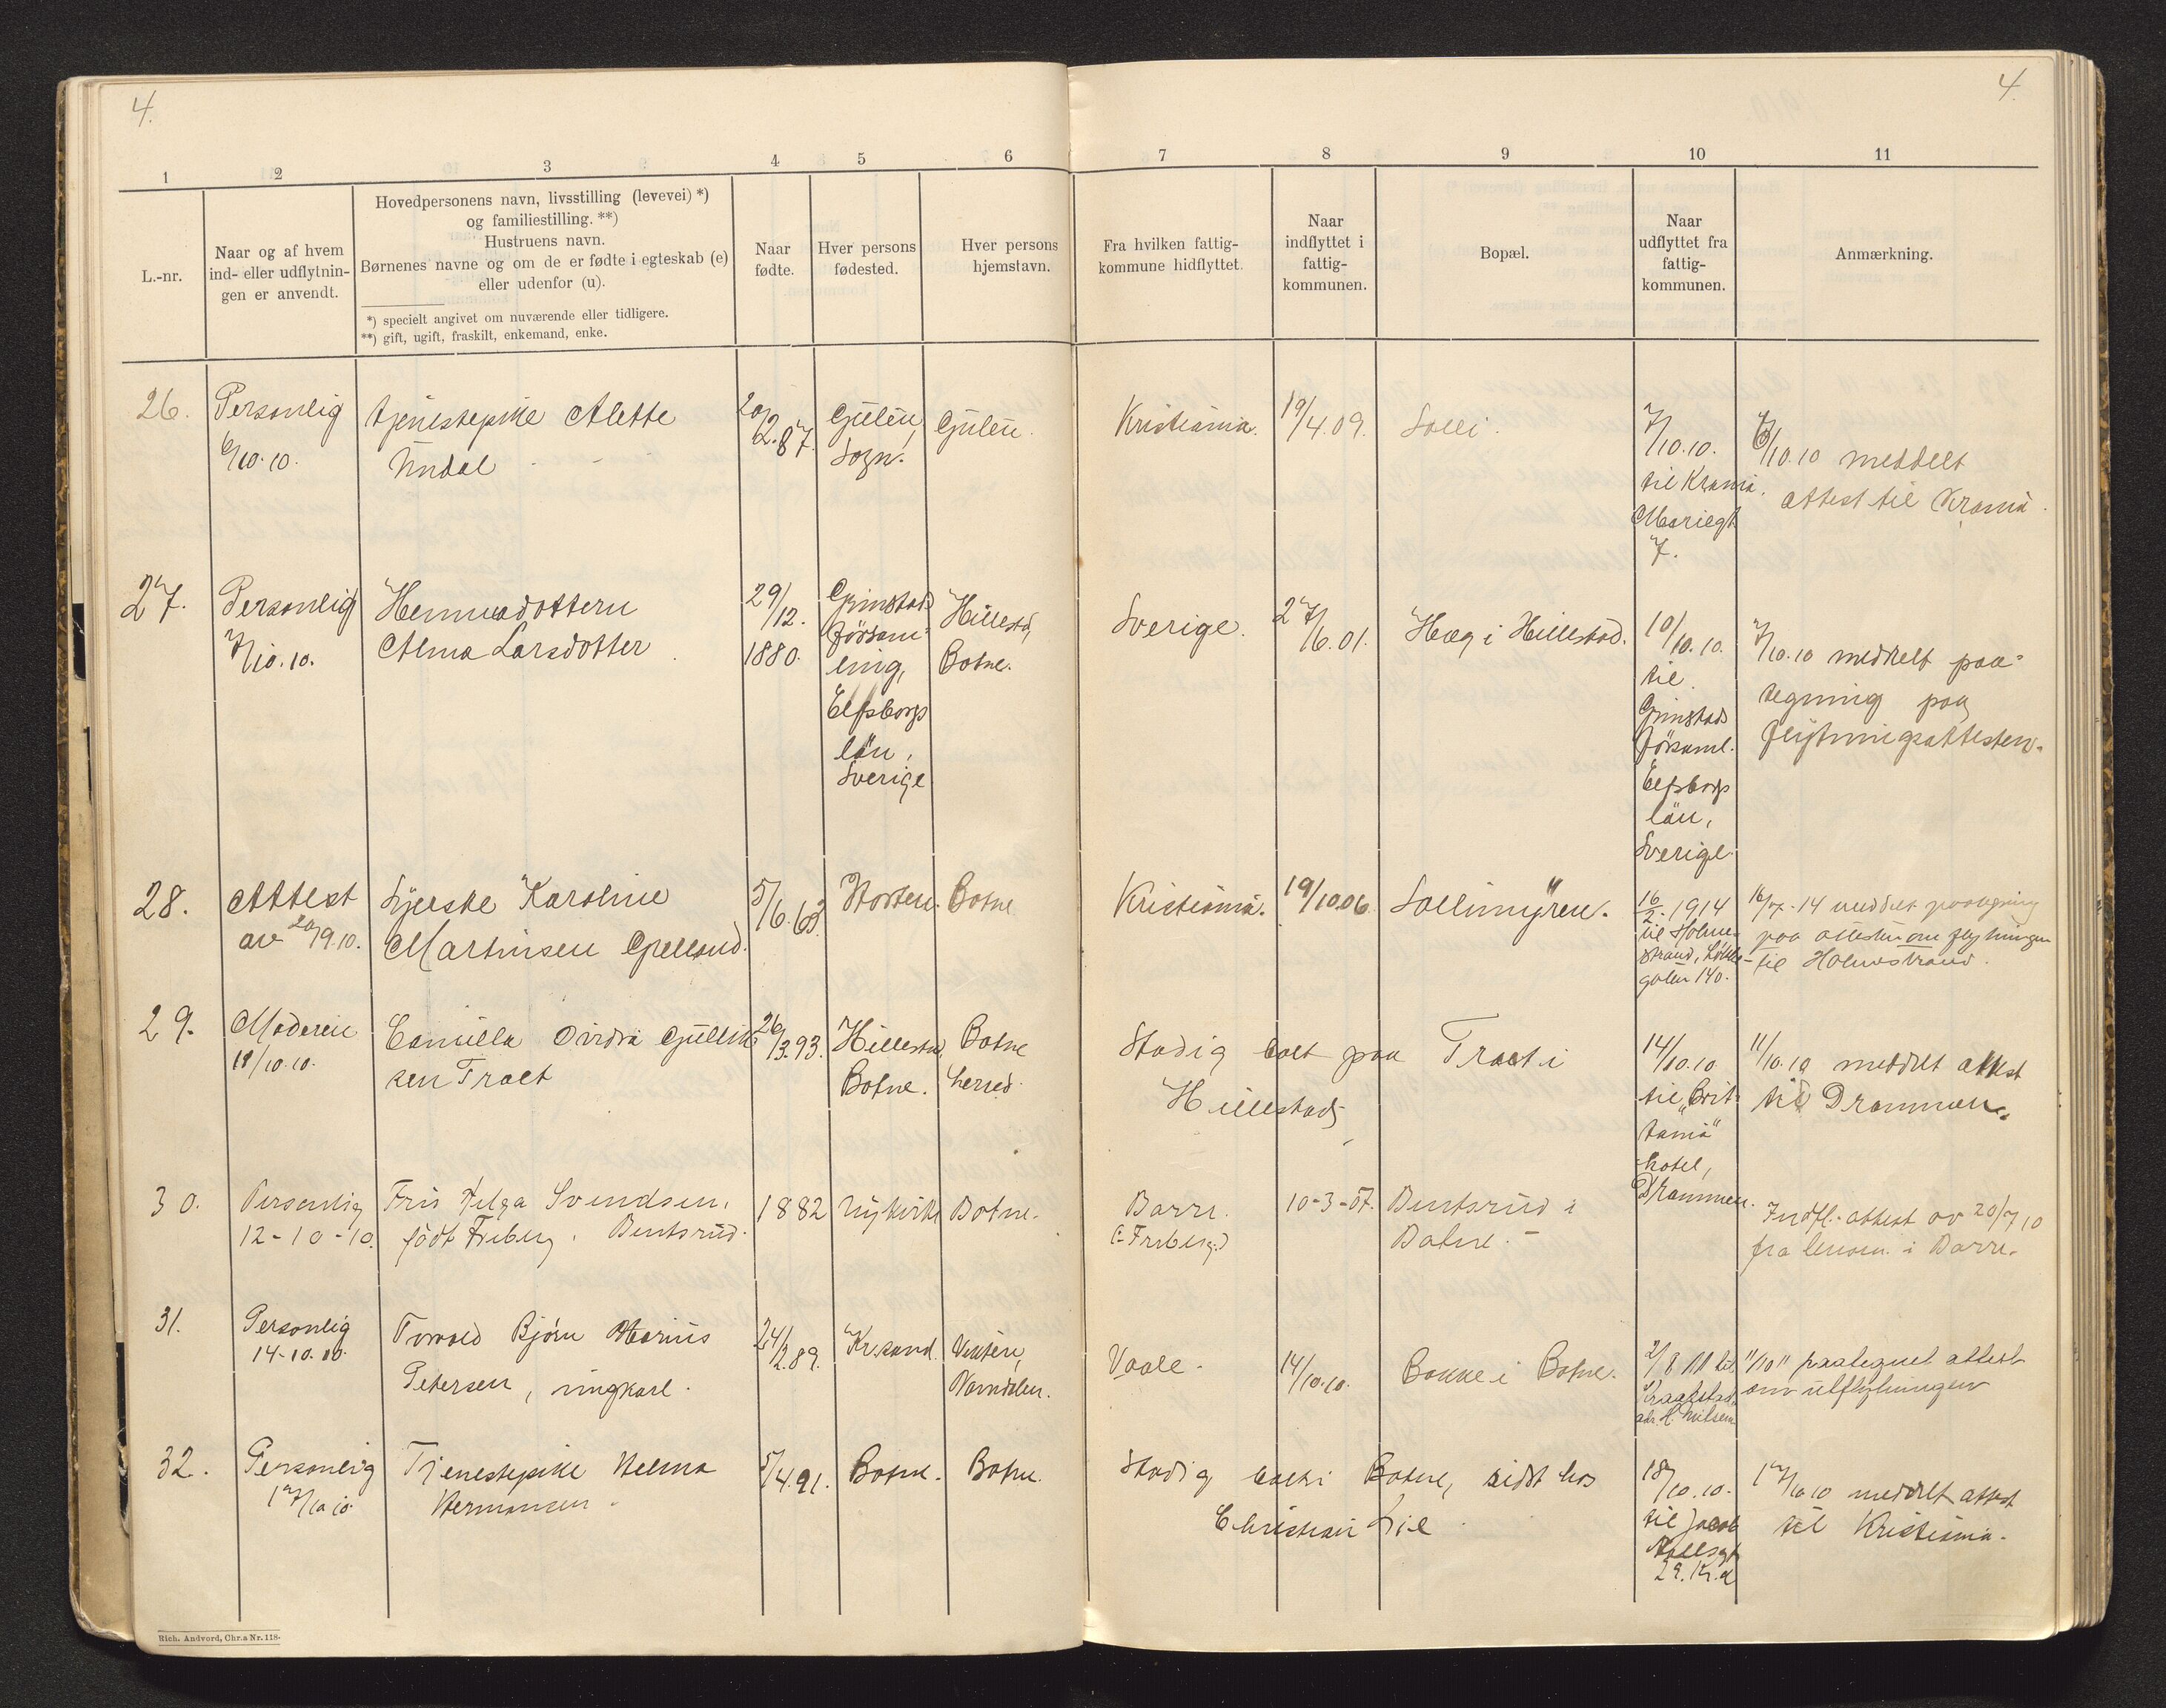 4.
4.
1 2 3 4 5 6 7 8 9 10 11
L.-nr.
Naar og af hvem
ind- eller udflytnin-
gen er anvendt.
Hovedpersonens navn, livsstilling (levevei) *)
og familiestilling. **)
Hustruens navn.
Børnenes navne og om de er fødte i egteskab (e)
eller udenfor (u).
*) specielt angivet om nuværende eller tidligere.
**) gift, ugift, fraskilt, enkemand, enke.
Naar
fødte.
Hver persons
fødested.
Hver persons
hjemstavn.
Fra hvilken fattig-
kommune hidflyttet.
Naar
indflyttet i
fattig-
kommunen.
Bopæl.
Naar
udflyttet fra
fattig-
kommunen.
Anmærkning.
26.
Personlig
6/10.10.
Tjenestepike Alette
Undal
20/2.87.
Gulen,
Sogn.
Gulen.
Kristiania.
19/4.09.
Solli.
7/10.10.
til Krania.
Mariegt
7.
6/10.10 meddelt
attest til Krania.
27.
Personlig
7/10.10.
Hemmadottern
Alma Larsdotter
29/12.
1880.
Grinstad
försam-
ling,
Elfsborgs
län,
Sverige
Hillestd,
Botne.
Sverige.
27/6.01.
Hæg i Hillestad.
10/10.10.
til
Grinstads
församl.
Elfsborgs
län,
Sverige.
7/10.10 meddelt paa-
tegning paa
flytningsattesten.
28.
Attest
av 20/9.10.
Syerske Karoline
Martinsen Gjelland.
5/6.63.
Horten.
Botne
Kristiania.
19/10.06.
Sollimyren.
16/2-1914
til Holme-
strand,
gaten 140.
16/2-14 meddelt paategning
paa attesten om flytningen
til Holmestrand.
29.
Moderen
11/10.10.
Camilla Ovidia Gullik-
sen Traet
26/3.93.
Hillestad,
Botne.
Botne
herred.
Stadig boet paa Traet i
Hillestad
14/10.10
til "Brit-
tania"
hotel,
Drammen.
11/10.10 meddelt attest
til Drammen.
30.
Personlig
12-10-10.
Fru Helga Svendsen,
født Friberg, Bentsrud.
1882
Nykirke
Botne.
Borre.
(: Friberg:)
10-3-07.
Bentsrud i
Botne.-
Indfl.-attest av 20/7 10
fra lensm. i Borre.
31.
Personlig
14-10.10.
Torvald Bjørn Marius
Petersen, ungkarl.
24/2.89.
Kr.sand.
Vikten,
Namdalen.
Vaale.
14/10.10.
Bakke i Botne.
2/8 11 til
Kraakstad,
adr. H. Nilsen
11/10 11 paategnet attest
om utflytningen
32.
Personlig
17/10 10.
Tjenestepike Helma
Hermansen.
5/4.91.
Botne.
Botne.
Stadig boet i Botne, sidst hos
Christian Lie
18/10.10.
til Jacob
Aallsgt
29. Kr.a
17/10 10 meddelt attest
til Kristiania.
Rich. Andvord, Chr.a Nr. 118.